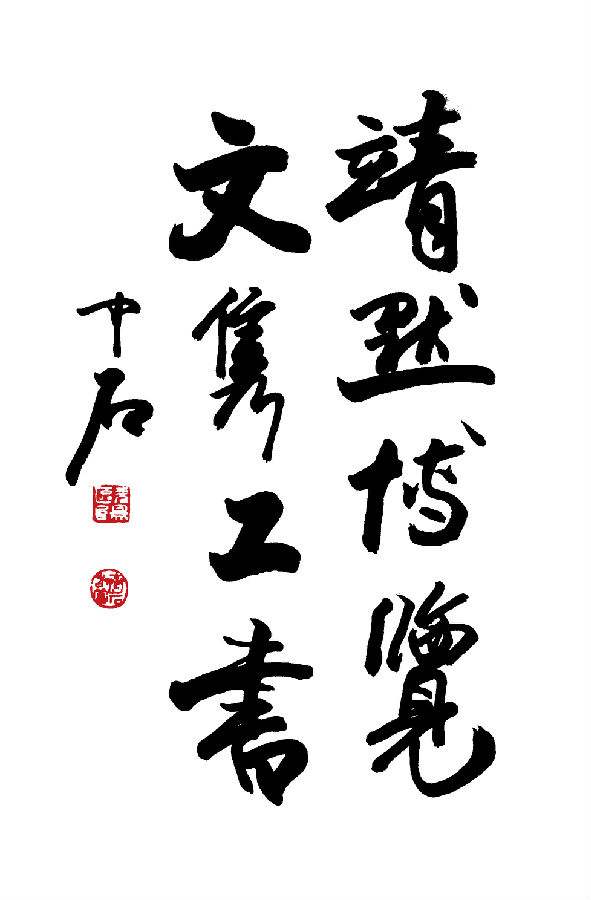 靖默博覽
文雋工書
中石